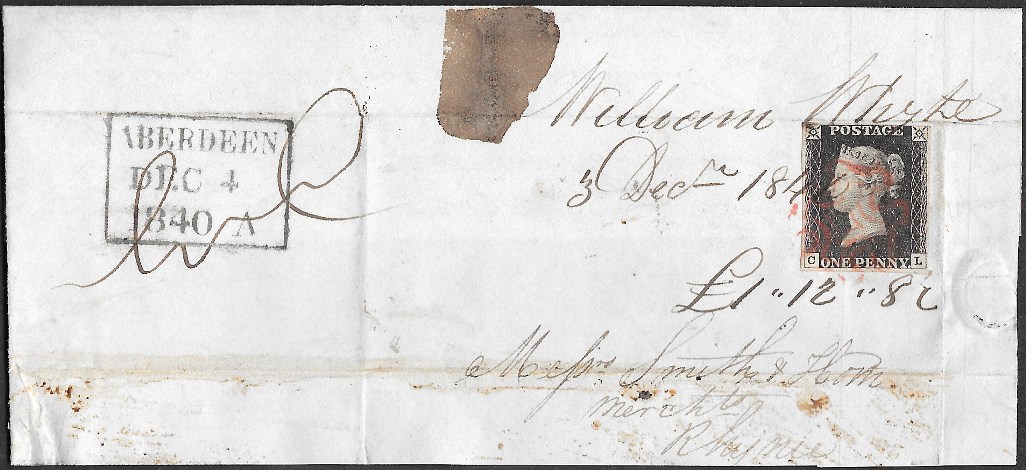 William Whyte
ABERDEEN
DEC 4
1840 A
3 Decr 184
POSTAGE
C ONE PENNY. L
£1 " 12 " 8
Messrs Smith & Horn
Merchts
Rhynie